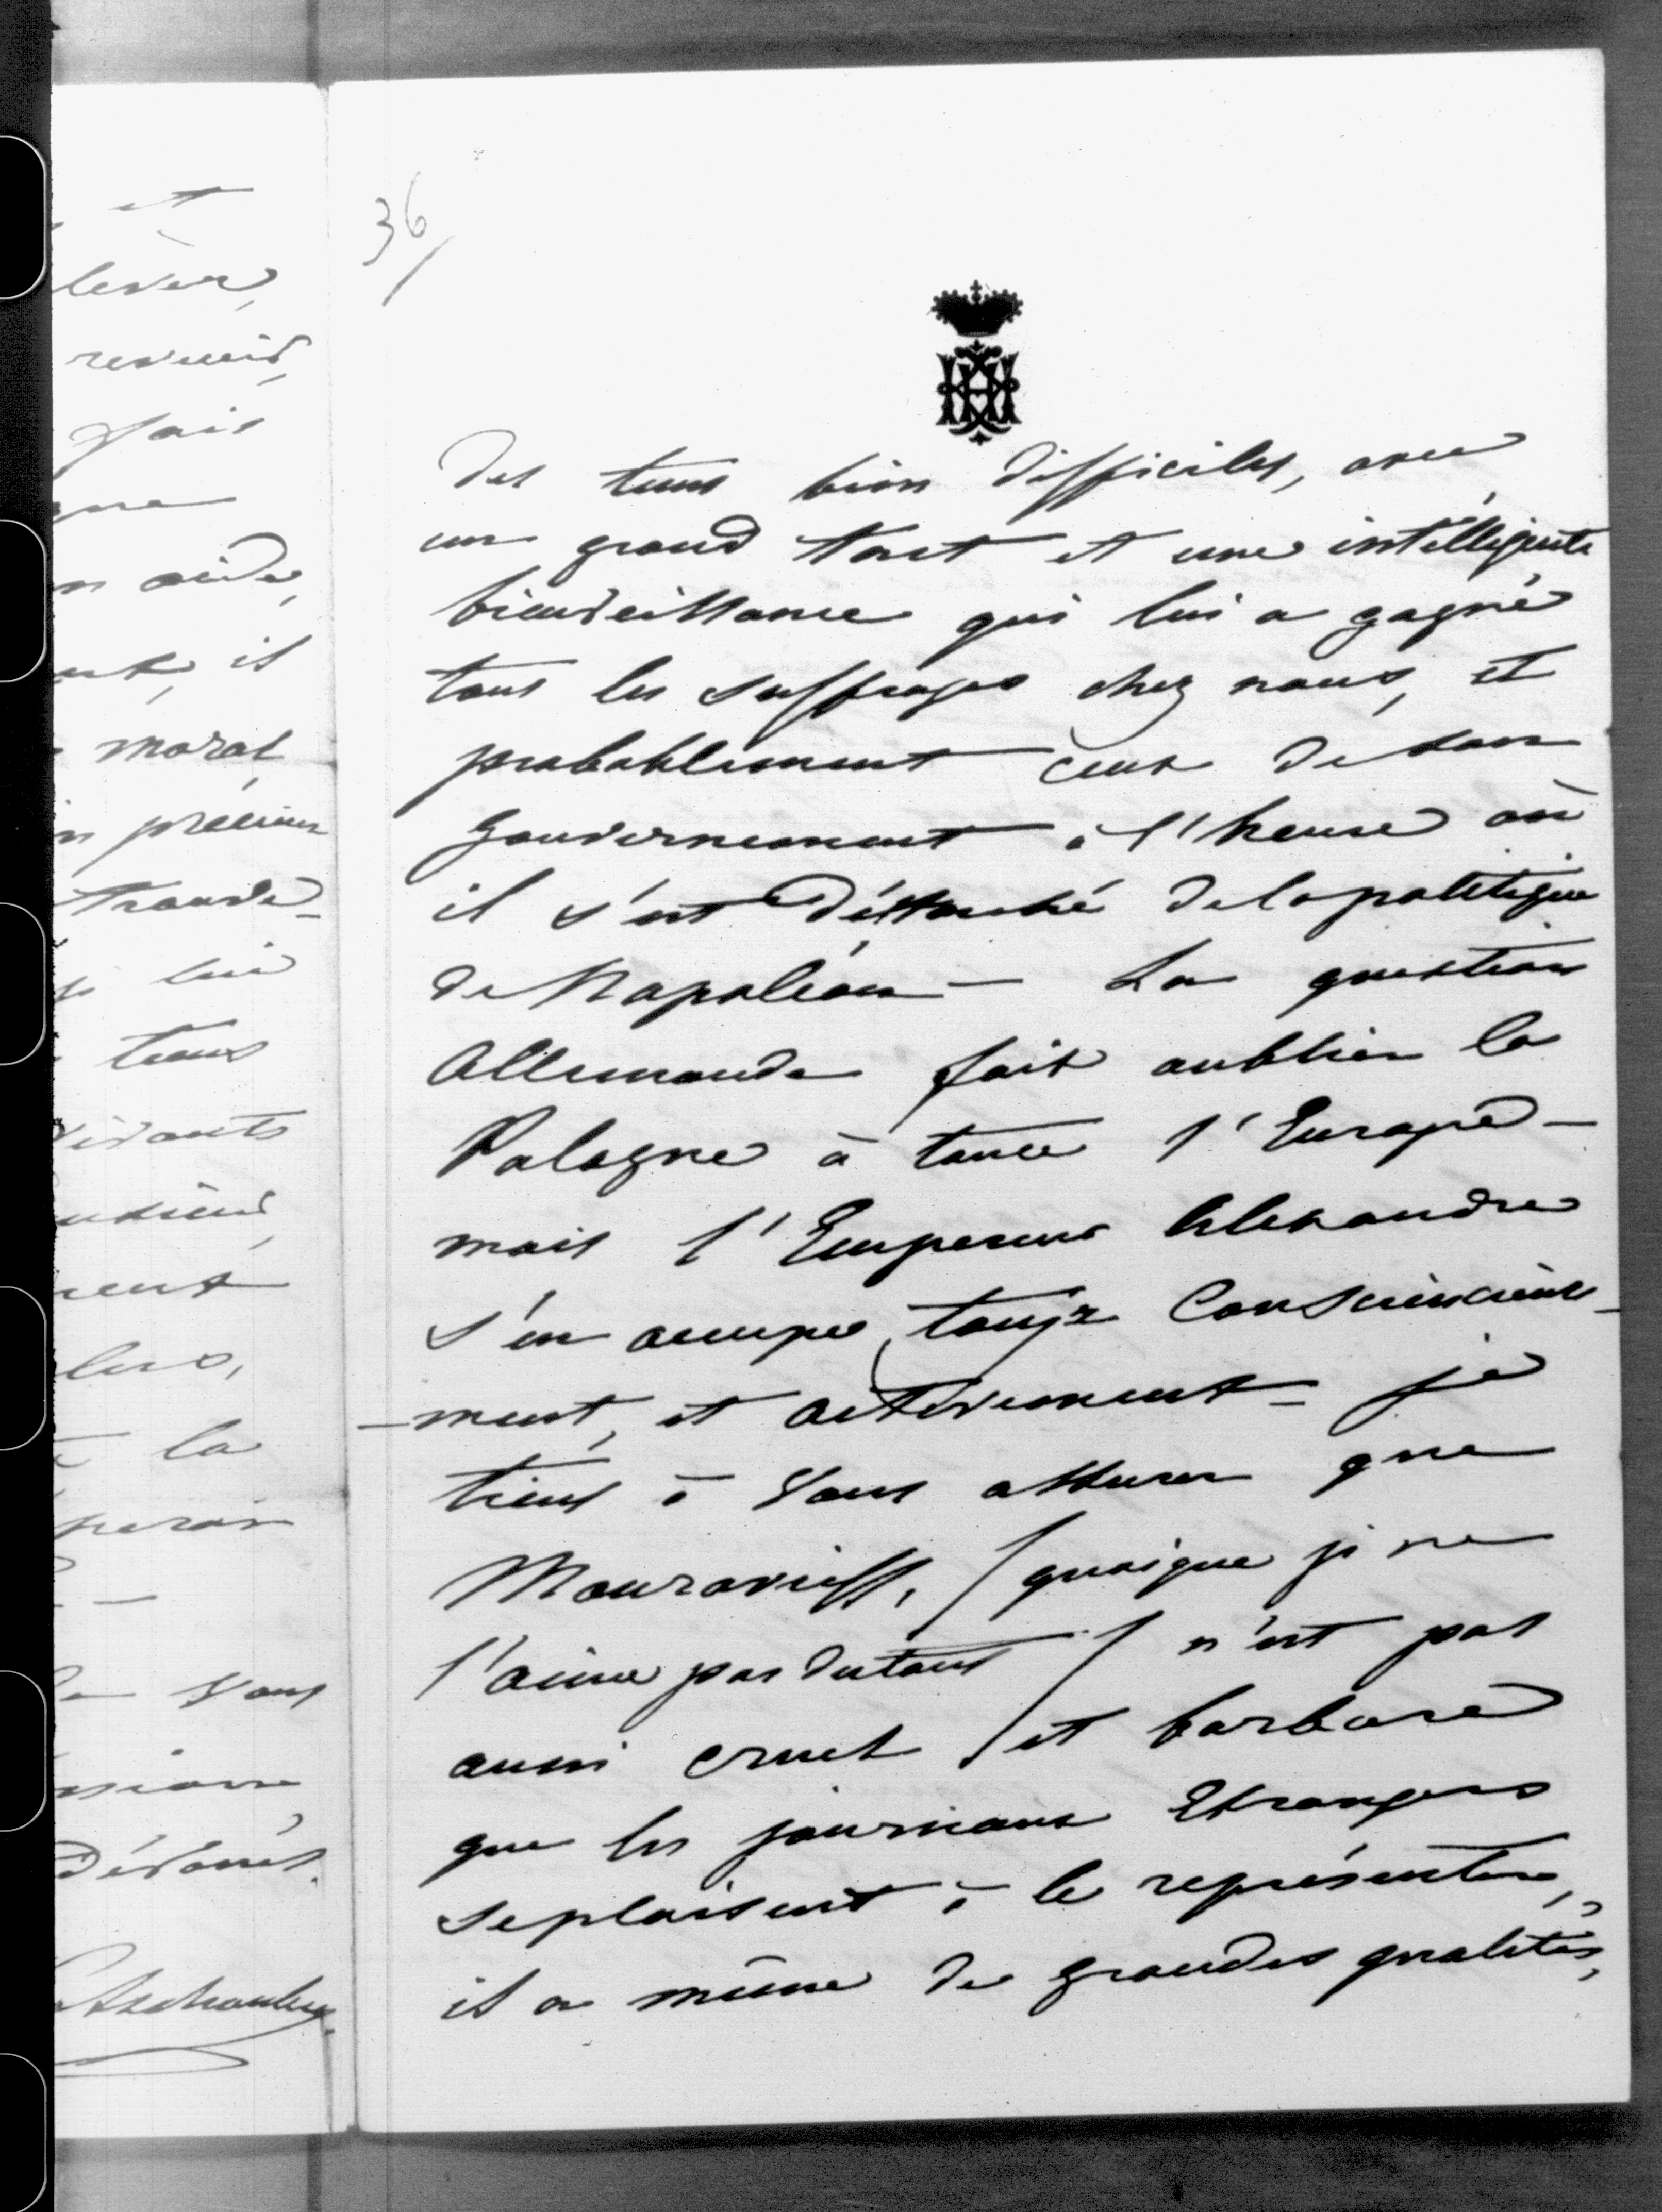 et
lever,
revenir,
fais
que
n aide,
ent, il
moral
n précieux
trouve-
si lui
tems
vivants
ment
leurs,
à la
—
vous
dévoués.
36/
des tems bien difficiles, avec
un grand tact et une intélligente
bienveillance qui lui a gagné
tous les suffrages chez nous, et
probablement ceux de son
gouvernement à l'heure où
il s'est déttaché de la polítique
de Napoléon — La question
Allemande fait oublier la
Pologne à toute l'Europe —
mais l'Empereur Alexandre
s'en occupe, toujrs consciencieuse-
-ment, et activement — je
tiens à vous assurer que
Mouravieff, / quoique je ne
l'aime pas du tout / n'est pas
aussi cruel et barbare
que les journaux Etrangers
se plaisent à le représenter,
il a même de grandes qualités,